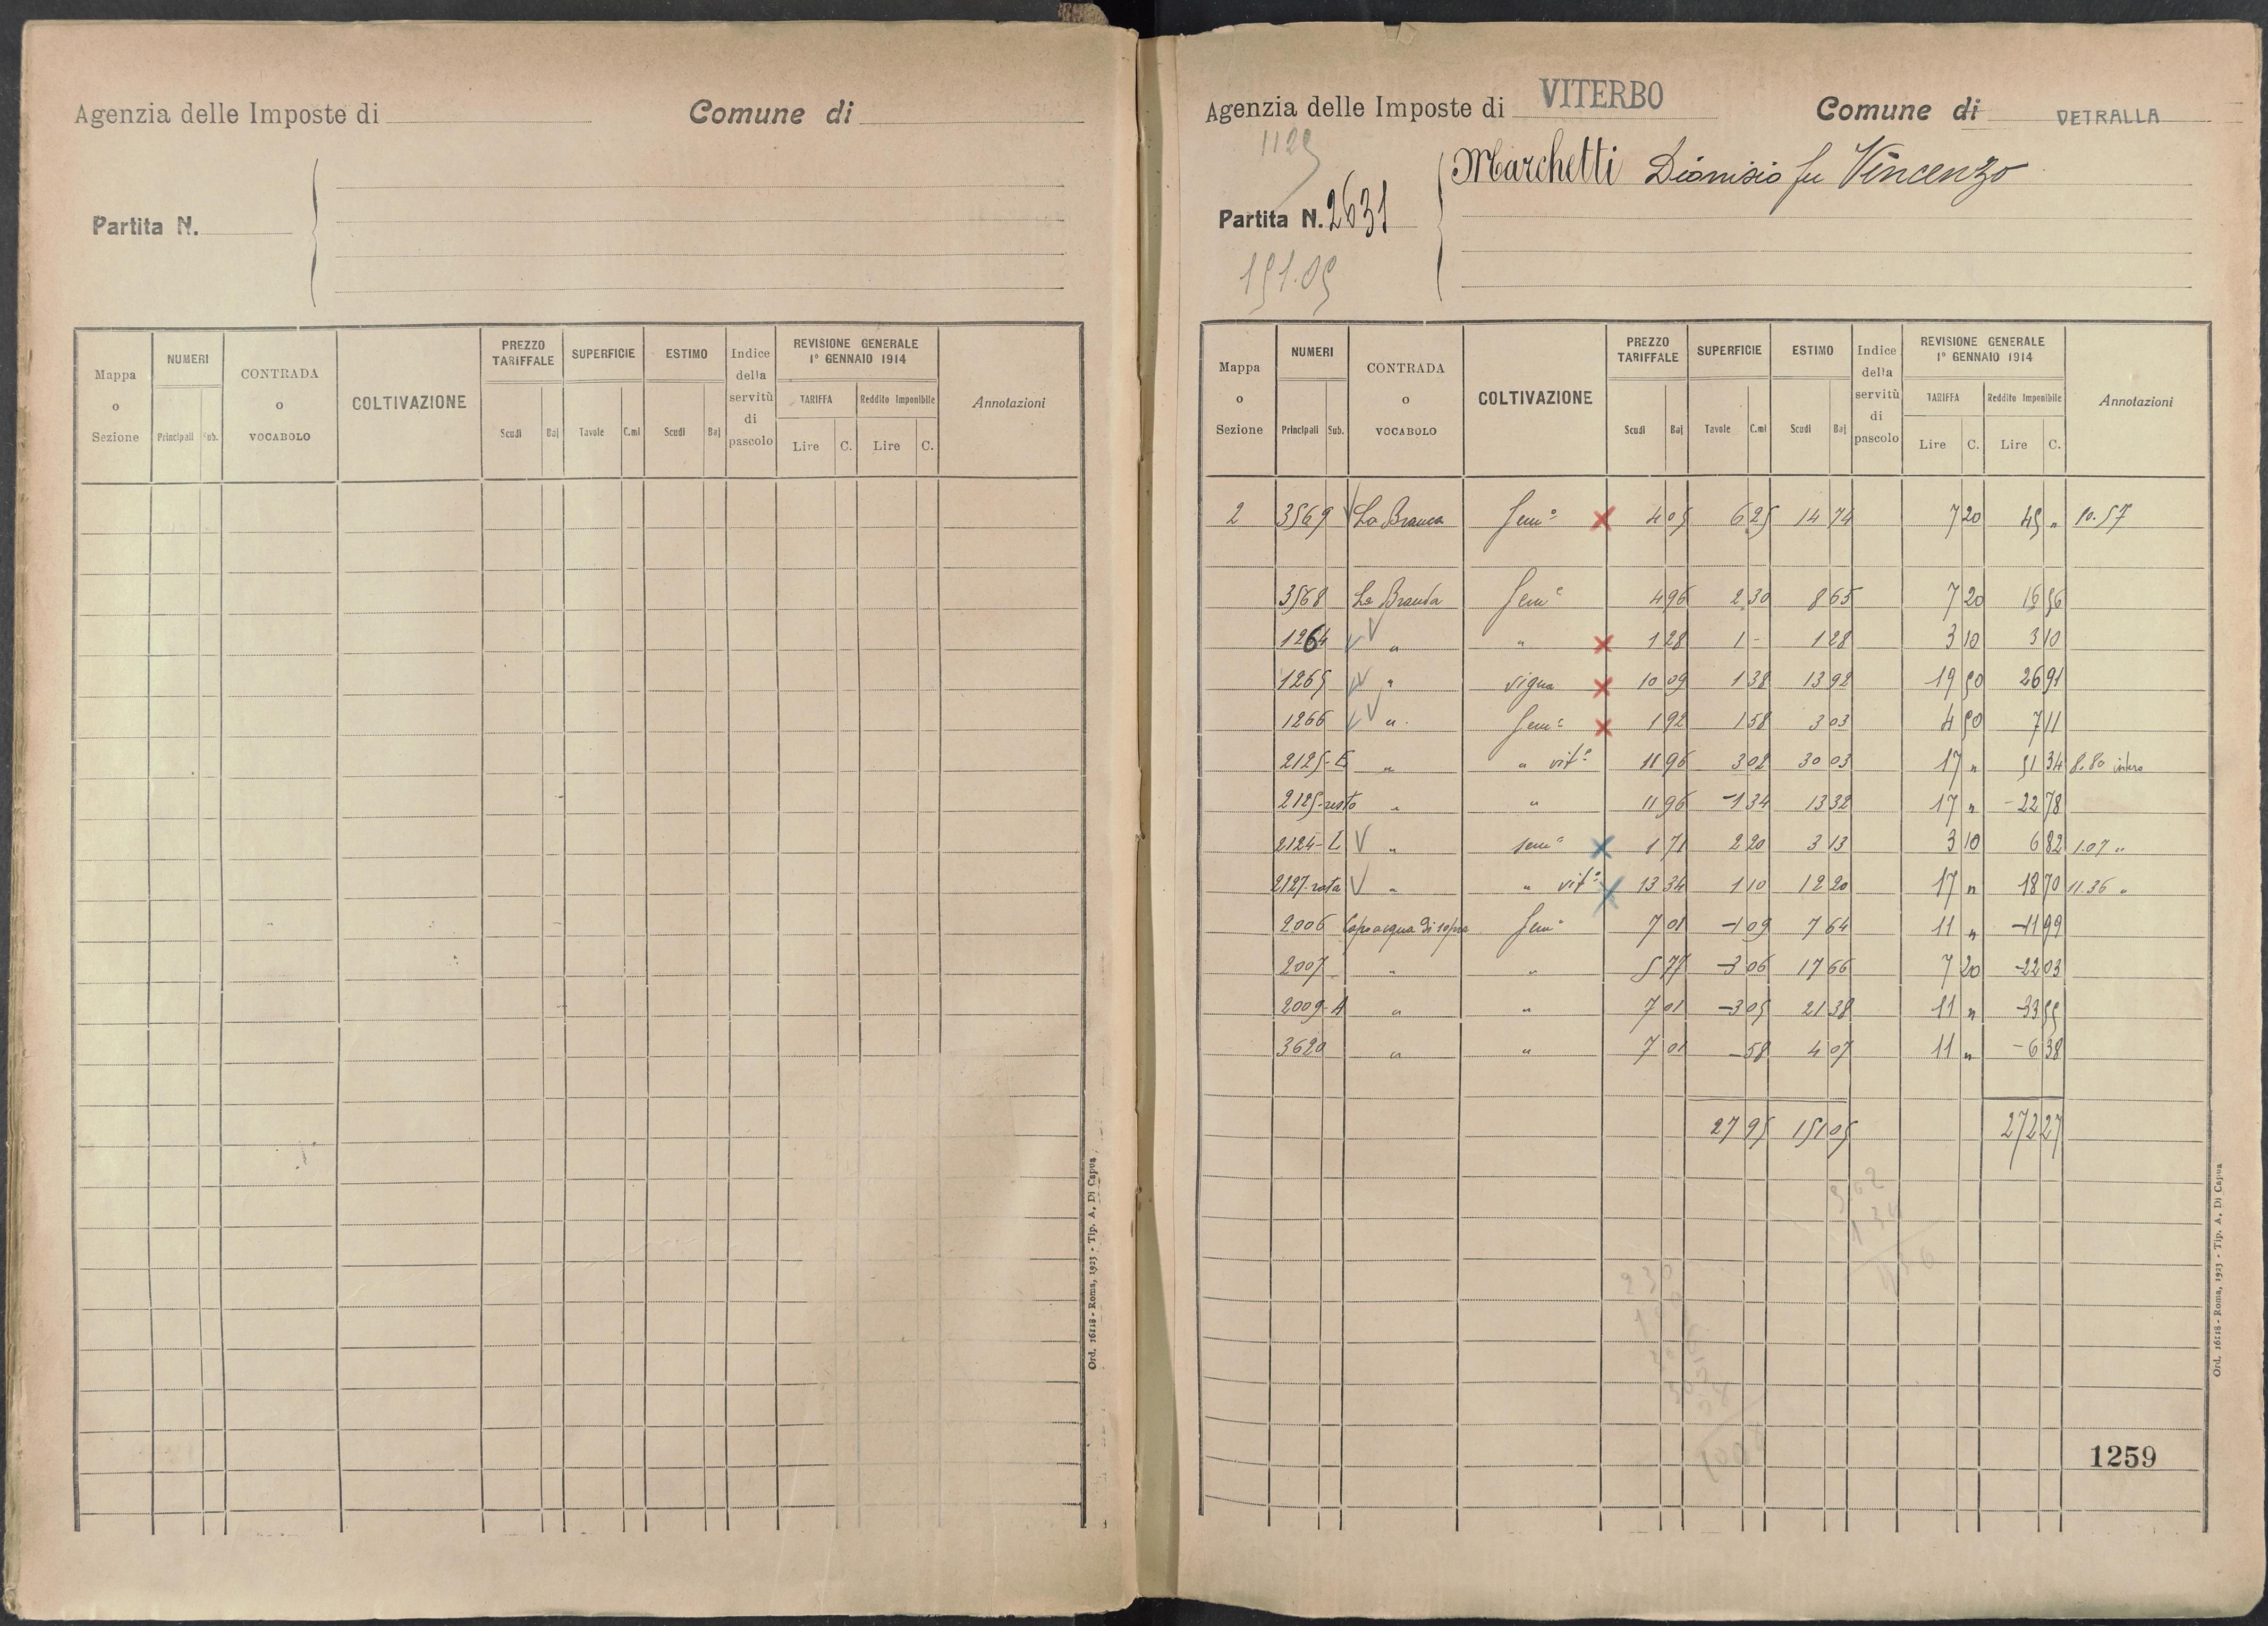 Agenzia delle Imposte di
Comune di
Partita N.
Mappa o Sezione
NUMERI
Principali
Sub.
CONTRADA o VOCABOLO
COLTIVAZIONE
PREZZO TARIFFALE
Scudi
Baj
SUPERFICIE
Tavole
C.mi
ESTIMO
Scudi
Baj
Indice della servitù di pascolo
REVISIONE GENERALE
1° GENNAIO 1914
TARIFFA
Reddito Imponibile
Lire
C.
Lire
C.
Annotazioni
Ord. 16118 - Roma, 1923 - Tip. A. Di Capua
Agenzia delle Imposte di VITERBO
Comune di VETRALLA
Marchetti Dionisio fu Vincenzo
Partita N. 2631
151.05
Mappa o Sezione
NUMERI
Principali
Sub.
CONTRADA o VOCABOLO
COLTIVAZIONE
PREZZO TARIFFALE
Scudi
Baj
SUPERFICIE
Tavole
C.mi
ESTIMO
Scudi
Baj
Indice della servitù di pascolo
REVISIONE GENERALE
1° GENNAIO 1914
TARIFFA
Reddito Imponibile
Lire
C.
Lire
C.
Annotazioni
2 3569 La Branca Sem° 4 05 6 25 14 74 7 20 45 " 10.57
3568 Sem° 4 96 2 30 8 65 7 20 16 56
1264 " " 1 28 1 - 1 28 3 10 3 10
1265 " vigna 10 09 1 38 13 92 19 50 26 91
1266 " Sem° 1 92 1 58 3 03 4 50 7 11
2125-E " " vit° 11 96 3 02 30 03 17 " 51 34 8.80 intero
2125-resto " " 11 96 -1 34 13 32 17 " -22 78
2124-L " sem° 1 71 2 20 3 13 3 10 6 82 1.07 "
2127-rata " " vit° 13 34 1 10 12 20 17 " 18 70 11.36 "
2006 Capoacqua di sopra Sem° 7 01 -1 09 7 64 11 " -11 99
2007 " " 5 77 -3 06 17 66 7 20 -22 03
2009-A " " 7 01 -3 05 21 38 11 " -33 55
3620 " " 7 01 -58 4 07 11 " -6 38
27 95 151 05 272 27
1259
Ord. 16118 - Roma, 1923 - Tip. A. Di Capua